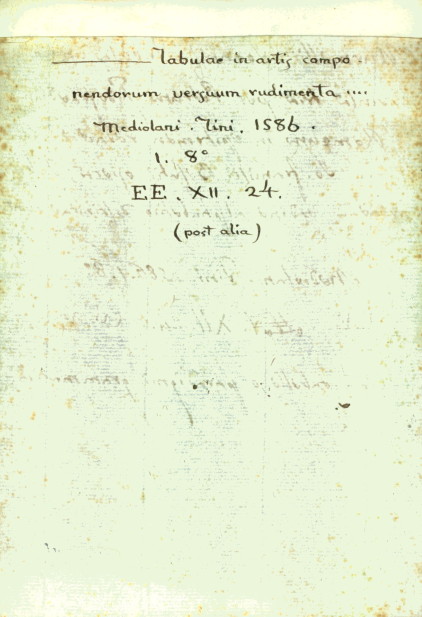 ——— Tabulae in artis compo
nendorum versuum rudimenta ....
Mediolani. Tini. 1586.
1. 8°
EE. XII. 24.
(post alia)